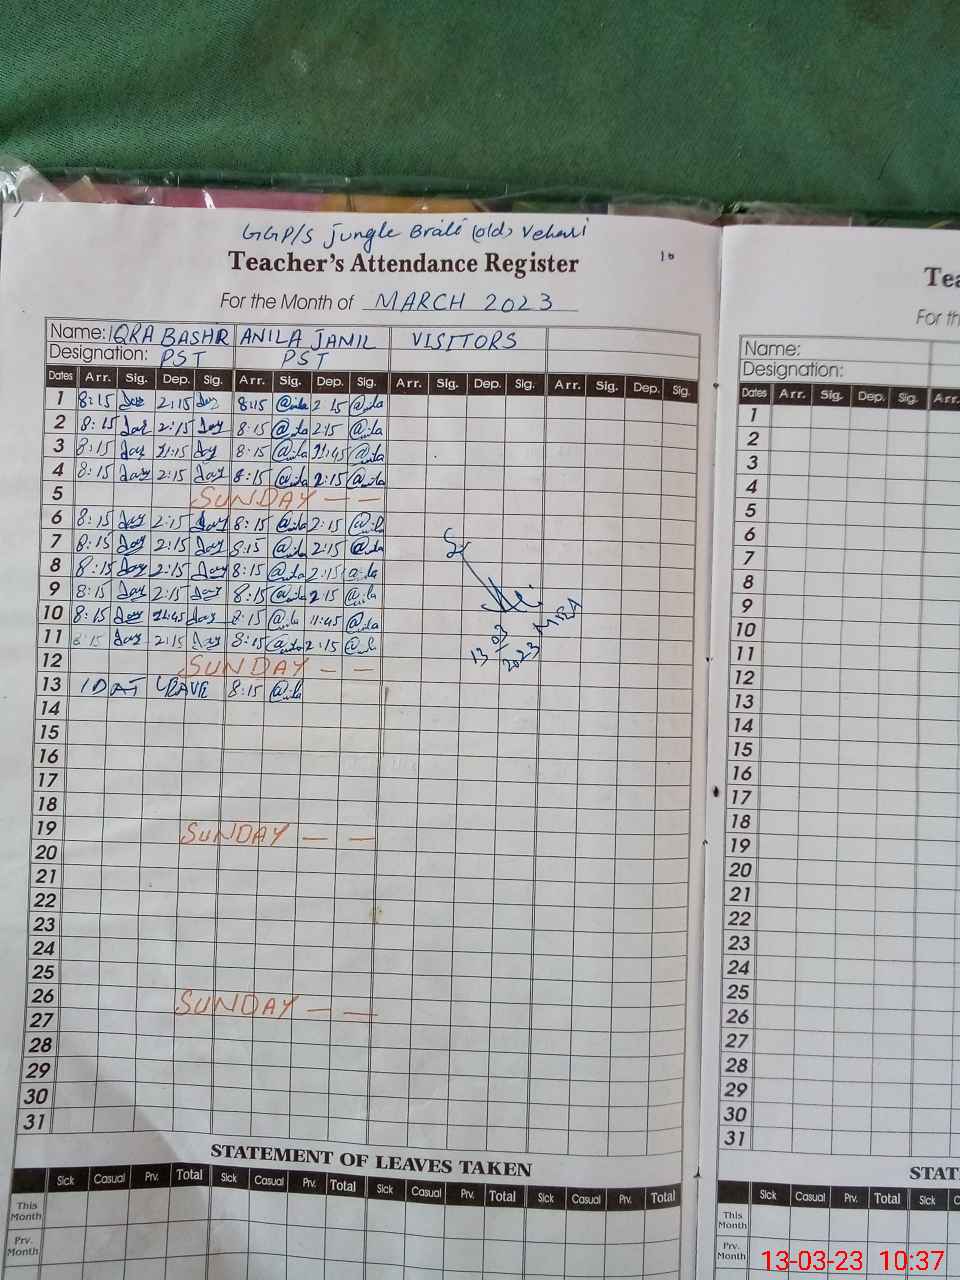 GGP/S Jungle Brali (old) Vehari
Teacher's Attendance Register
For the Month of MARCH 2023
Name: IQRA BASHR ANILA JAMIL VISITORS
Designation: PST PST
Dates Arr. Sig. Dep. Sig. Arr. Sig. Dep. Sig. Arr. Sig. Dep. Sig. Arr. Sig. Dep. Sig.
1 8:15 2:15 8:15 2:15
2 8:15 2:15 8:15 2:15
3 8:15 11:15 8:15 11:45
4 8:15 2:15 8:15 2:15
5 SUNDAY — —
6 8:15 2:15 8:15 2:15
7 8:15 2:15 8:15 2:15
8 8:15 2:15 8:15 2:15
9 8:15 2:15 8:15 2:15
10 8:15 11:45 8:15 11:45
11 8:15 2:15 8:15 2:15
13 03 2023 MEA
12 SUNDAY — —
13 1 DAY LEAVE 8:15
14
15
16
17
18
19 SUNDAY — —
20
21
22
23
24
25
26 SUNDAY — —
27
28
29
30
31
STATEMENT OF LEAVES TAKEN
Sick Casual Prv. Total Sick Casual Prv. Total Sick Casual Prv. Total Sick Casual Prv. Total
This Month
Prv. Month
Tea
For th
Name:
Designation:
Dates Arr. Sig. Dep. Sig. Arr.
1
2
3
4
5
6
7
8
9
10
11
12
13
14
15
16
17
18
19
20
21
22
23
24
25
26
27
28
29
30
31
STAT
Sick Casual Prv. Total Sick C
This Month
Prv. Month
13-03-23 10:37